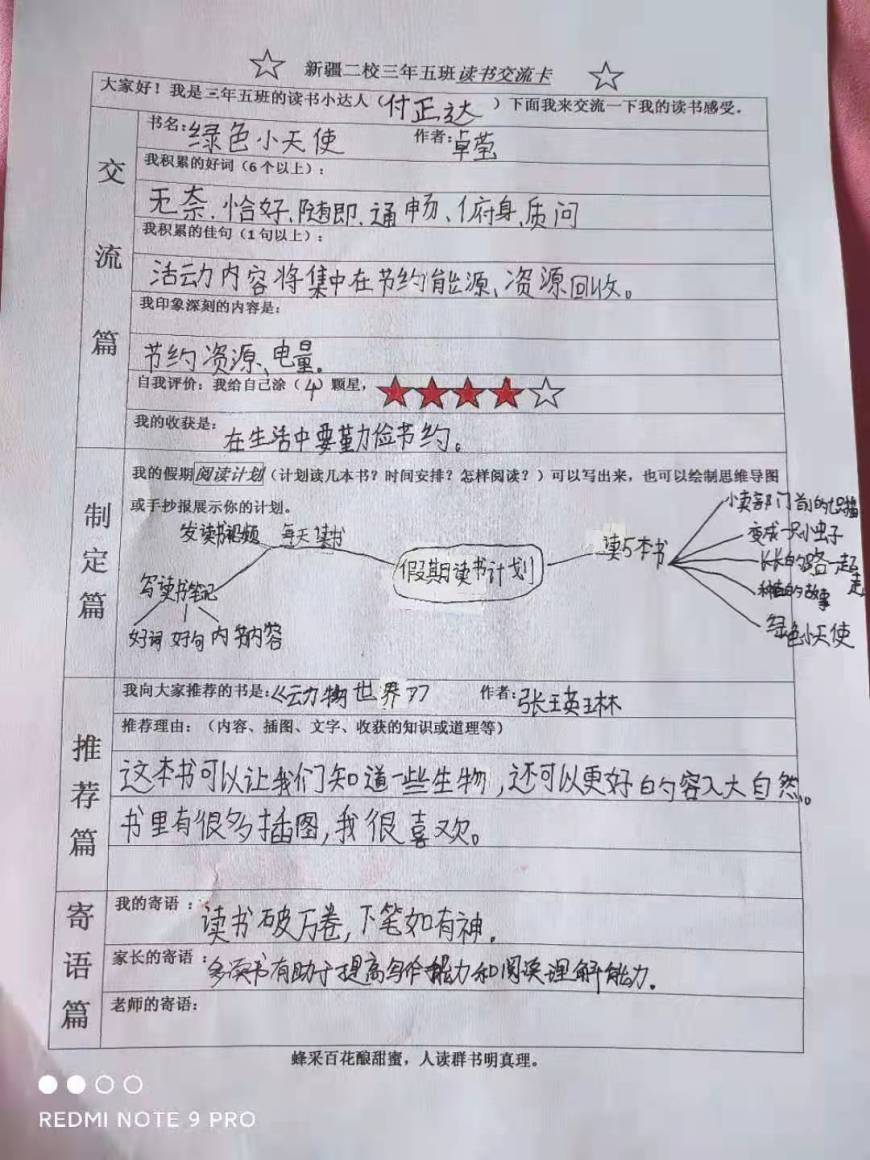 新疆二校三年五班读书交流卡
大家好！我是三年五班的读书小达人（付正达）下面我来交流一下我的读书感受。
交流篇
书名：绿色小天使 作者：卓莹
我积累的好词（6个以上）：
无奈、恰好、随即、通畅、俯身、质问
我积累的佳句（1句以上）：
活动内容将集中在节约能源、资源回收。
我印象深刻的内容是：
节约资源、电量。
自我评价：我给自己涂（4）颗星，
我的收获是：在生活中要勤俭节约。
制定篇
我的假期阅读计划（计划读几本书？时间安排？怎样阅读？）可以写出来，也可以绘制思维导图
或手抄报展示你的计划。
假期读书计划
每天读书
发读书视频
写读书笔记
好词 好句 内容
读5本书
小卖部门前的
变成一只小虫子
长长的路一起走
种植的故事
绿色小天使
推荐篇
我向大家推荐的书是：《动物世界》 作者：张瑛琳
推荐理由：（内容、插图、文字、收获的知识或道理等）
这本书可以让我们知道一些生物，还可以更好的容入大自然。
书里有很多插图，我很喜欢。
寄语篇
我的寄语：读书破万卷，下笔如有神。
家长的寄语：多读书有助于提高写作能力和阅读理解能力。
老师的寄语：
蜂采百花酿甜蜜，人读群书明真理。
REDMI NOTE 9 PRO